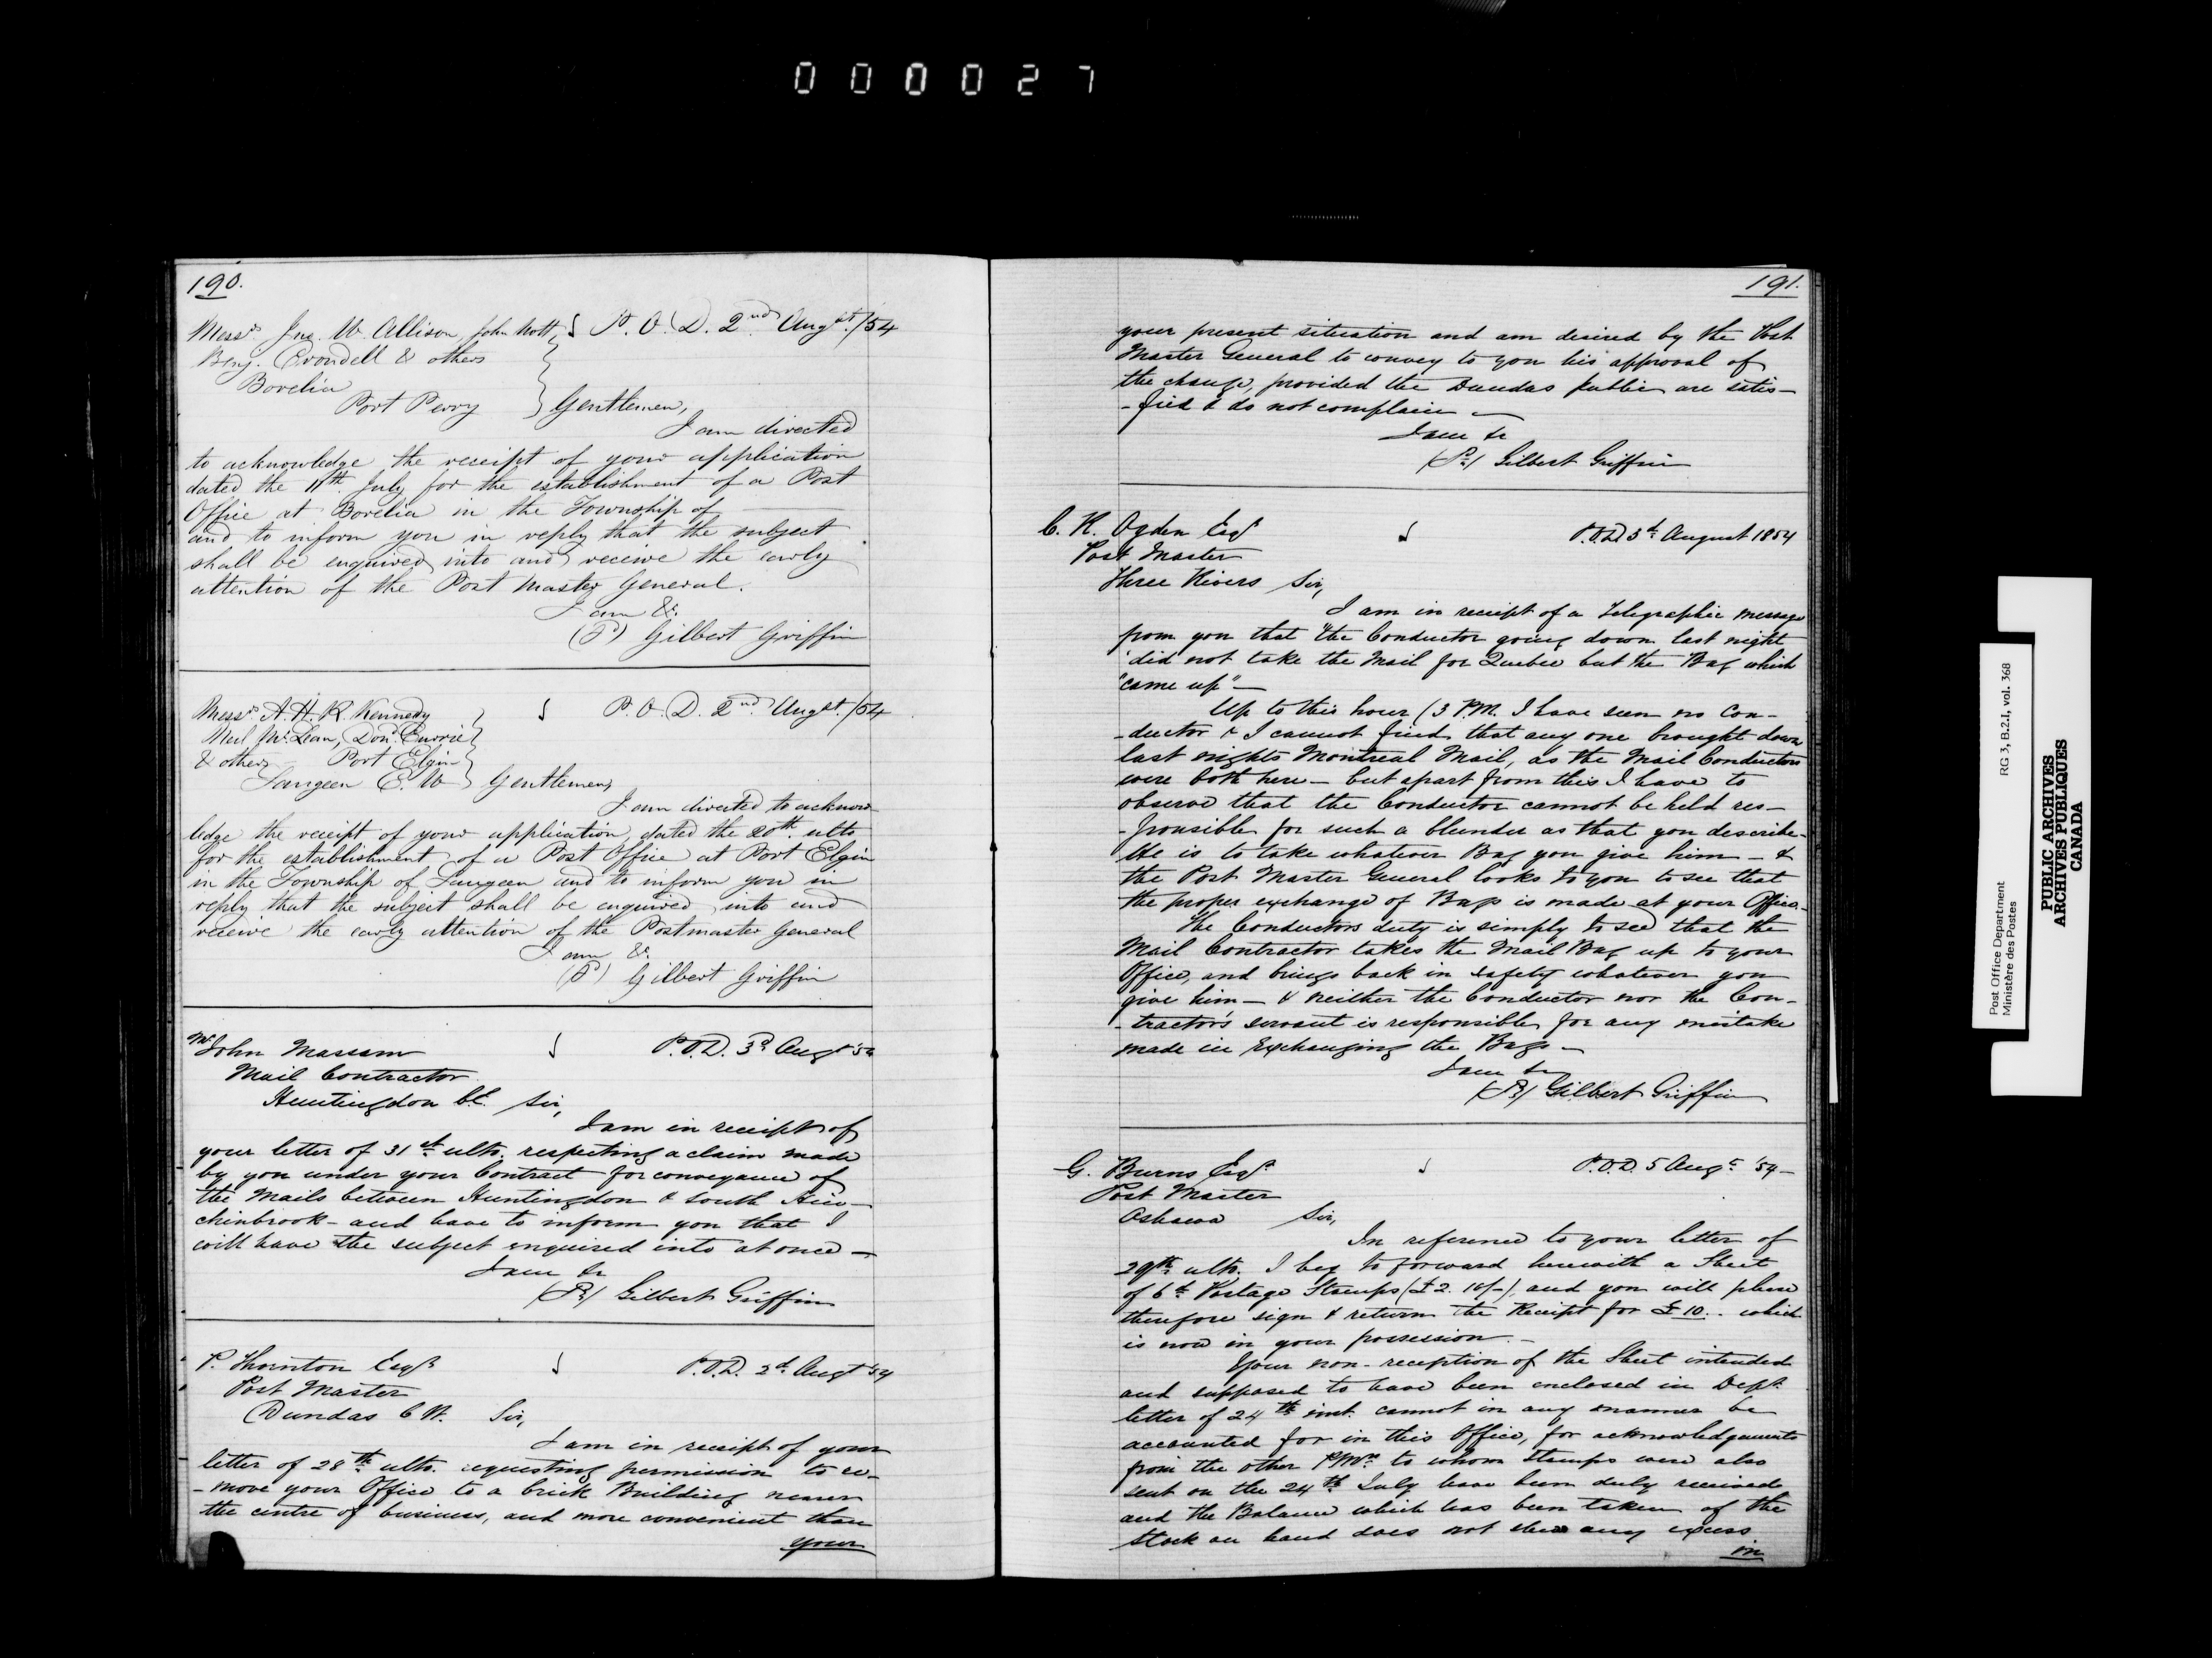 000027
190.
Messrs. Jno. W. Allison, John Nott, P. O. D. 2nd Augst. /54
Benj. Crondell & others
Borelia
Port Perry Gentlemen,
I am directed
to acknowledge the receipt of your application
dated the 11th. July for the establishment of a Post
Office at Borelia in the Township of ———
and to inform you in reply that the subject
shall be enquired into and receive the early
attention of the Post Master General.
I am &c.
Gilbert Griffin
Messrs. A. H. R. Kennedy P. O. D. 2nd. Augst. /54
Neil McLean, Dond. Currie
& others Port Elgin
Saugeen C. W Gentlemen,
I am directed to acknow-
ledge the receipt of your application, dated the 20th. ulto
for the establishment of a Post Office at Port Elgin
in the Township of Saugeen and to inform you in
reply that the subject shall be enquired into and
receive the early attention of the Postmaster General
I am &c.
Gilbert Griffin
Mr John Massam P.O.D. 3d Augt '54
Mail Contractor
Huntingdon C.E. Sir,
I am in receipt of
your letter of 31st ulto. respecting a claim made
by you under your Contract for conveyance of
the Mails between Huntingdon & South Hin-
chinbrook - and have to inform you that I
will have the subject enquired into at once —
I am &c
Gilbert Griffin
P. Thornton Esqr. P.O.D. 2d. Augt '54
Post Master
Dundas C W. Sir,
I am in receipt of your
letter of 28th ulto. requesting permission to re-
-move your Office to a brick Building nearer
the centre of business, and more convenient than
your
191.
your present situation and am desired by the Post
Master General to convey to you his approval of
the change, provided the Dundas public are satis-
-fied & do not complain —
I am &c
Gilbert Griffin
C. K. Ogden Esqr P.O.D. 5th August 1854
Post Master
Three Rivers Sir,
I am in receipt of a Telegraphic message
from you that "the Conductor going down last night
"did not take the Mail for Quebec but the Bag which
"came up" —
Up to this hour (3 P.M. I have seen no Con-
-ductor & I cannot find that any one brought down
last nights Montreal Mail, as the Mail Conductors
were both here — but apart from this I have to
observe that the Conductor cannot be held res-
-ponsible for such a blunder as that you describe-
He is to take whatever Bag you give him — &
the Post Master General looks to you to see that
the proper exchange of Bags is made at your Office.
The Conductors duty is simply to see that the
Mail Contractor takes the Mail Bag up to your
Office, and brings back in safety whatever you
give him — & neither the Conductor nor the Con-
-tractor's servant is responsible for any mistake
made in Exchanging the Bags —
I am &c
Gilbert Griffin
G. Burns Esqr. P.O.D. 5 Augt '54 —
Post Master
Oshawa Sir,
In reference to your letter of
29th. ulto. I beg to forward herewith a Sheet
of 6d. Postage Stamps (£2. 10/-), and you will please
therefore sign & return the Receipt for £10. - which
is now in your possession. —
Your non-reception of the Sheet intended
and supposed to have been enclosed in Dept.
letter of 24th inst. cannot in any manner be
accounted for in this Office, for acknowledgements
from the other PMrs. to whom Stamps were also
sent on the 24th July have been duly received
and the Balance which has been taken of the
Stock on hand does not shew any excess
in
Post Office Department RG 3, B.2.I, vol. 368
Ministère des Postes
PUBLIC ARCHIVES
ARCHIVES PUBLIQUES
CANADA